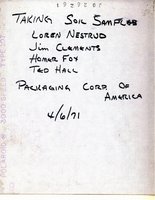 TAKING SOIL SAMPLES
LOREN NESTRUD
JIM CLEMENTS
HOMER FOX
TED HALL
PACKAGING CORP. OF
AMERICA
4/6/71